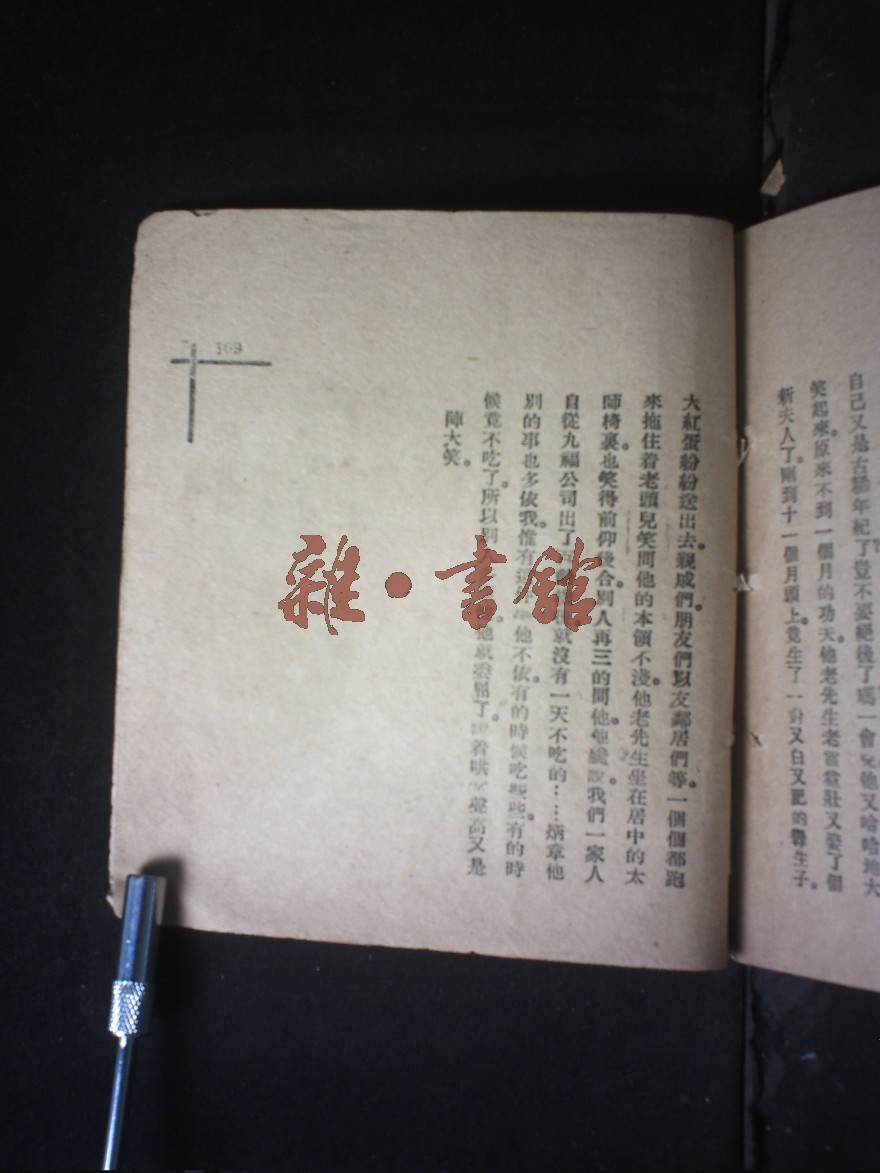 自己又是古稀年紀了豈不要絕後了嗎一會兒他又哈哈地大
笑起來。原來不到一個月的功天。他老先生老當益壯又娶了個
新夫人了。剛到十一個月頭上。竟生了一對又白又肥的孿生子。
大紅蛋紛紛送出去。親戚們。朋友們以友鄰居們等。一個個都跑
來拖住着老頭兒笑問他的本領不淺。他老先生坐在居中的太
師椅裏。也笑得前仰後合。別人再三的問他。他纔說。我們一家人
自從九福公司出了 就沒有一天不吃的……炳章他
別的事也多依我。惟有 他不依。有的時候吃些些。有的時
候竟不吃了。所以別 他就 了。着哄 聲高又是
陣大笑。
169
雜·書館